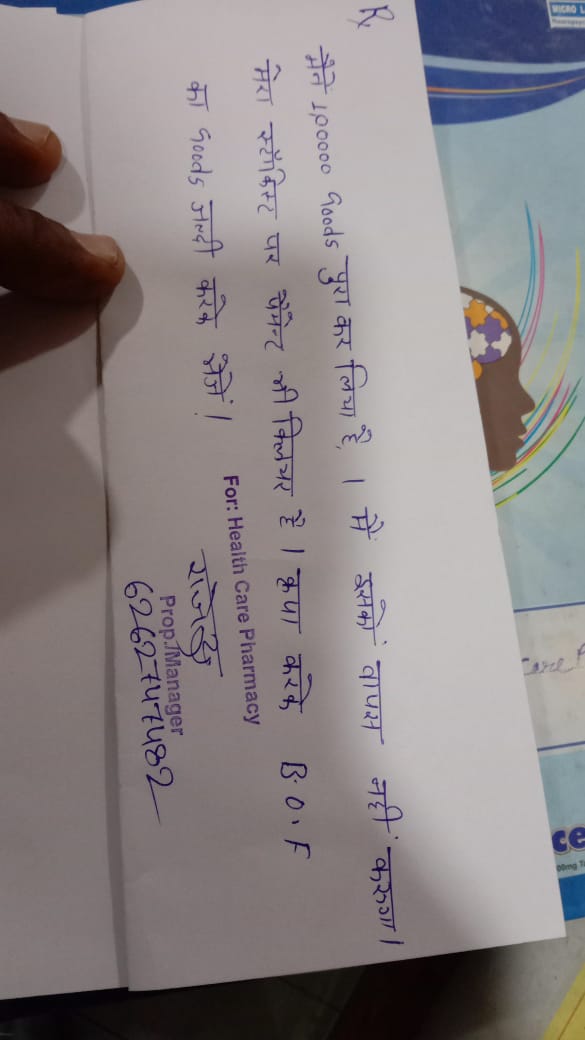 Rx
मैने 1,00000 Goods पुरा कर लिया है। मैं इसको वापस नहीं करुगा।
मेरा स्टॉकिस्ट पर पेमेन्ट भी क्लियर है। कृपा करके B.O.F
का Goods जल्दी करके भेजें।
For: Health Care Pharmacy
Prop./Manager
6262747482
MICRO L
care
ce
00mg T